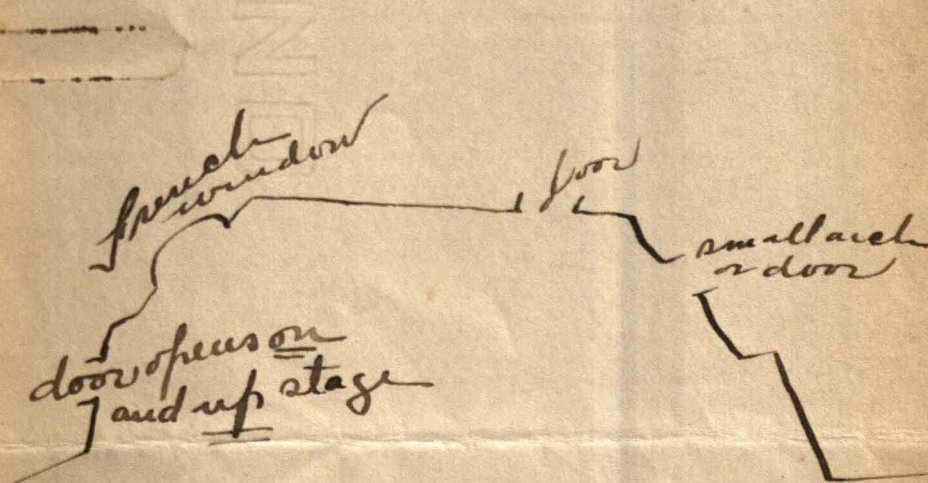 french
window
door
small arch
or door
door opens on
and up stage